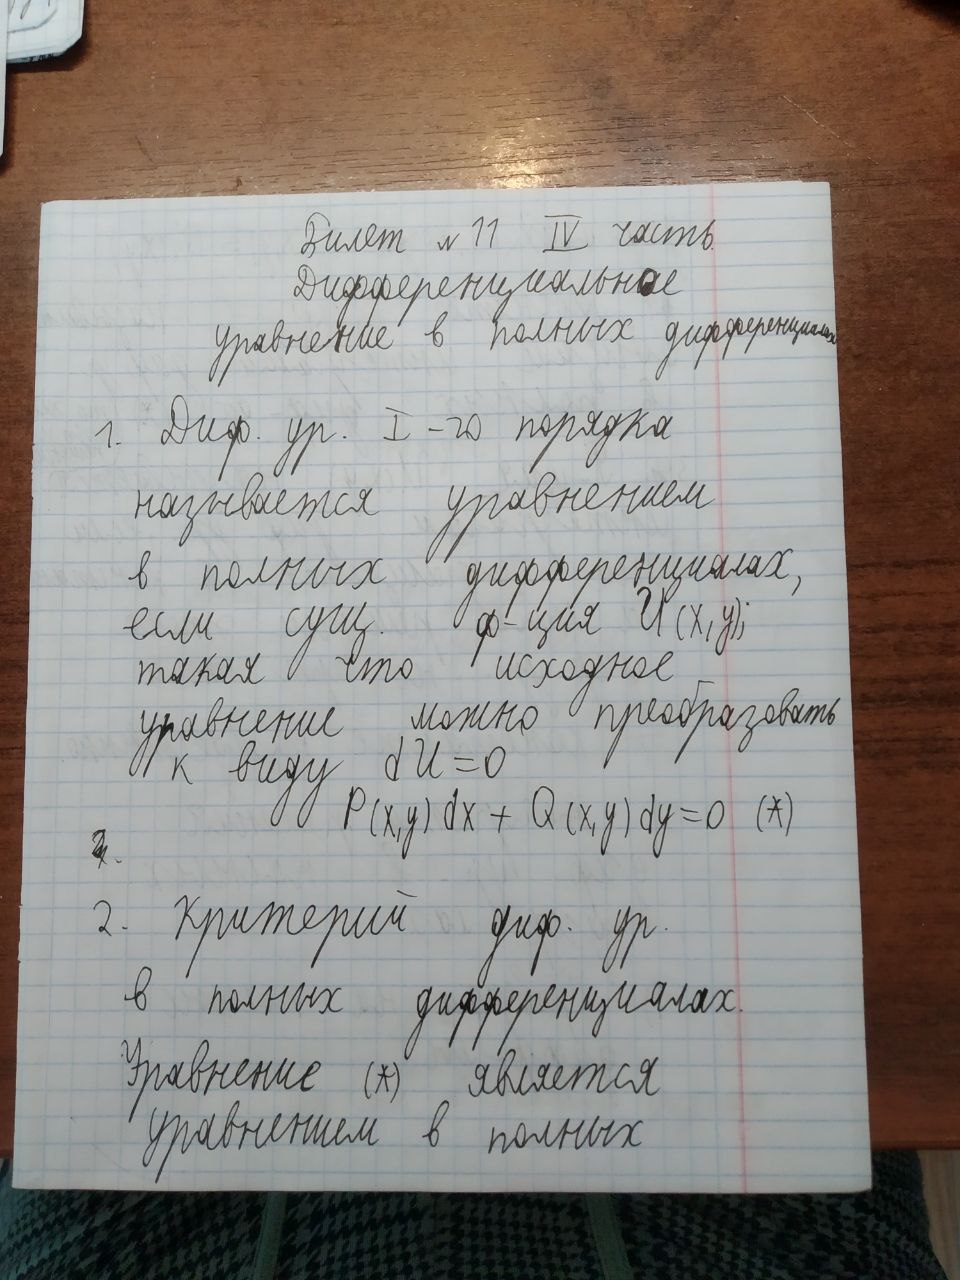 Билет №11 IV часть
Дифференциальное
уравнение в полных дифференциалах
1. Диф. ур. I-го порядка
называется уравнением
в полных дифференциалах,
если сущ. ф-ция U(x,y);
такая что исходное
уравнение можно преобразовать
к виду dU=0
P(x,y)dx + Q(x,y)dy=0 (*)
2. Критерий диф. ур.
в полных дифференциалах.
Уравнение (*) является
уравнением в полных